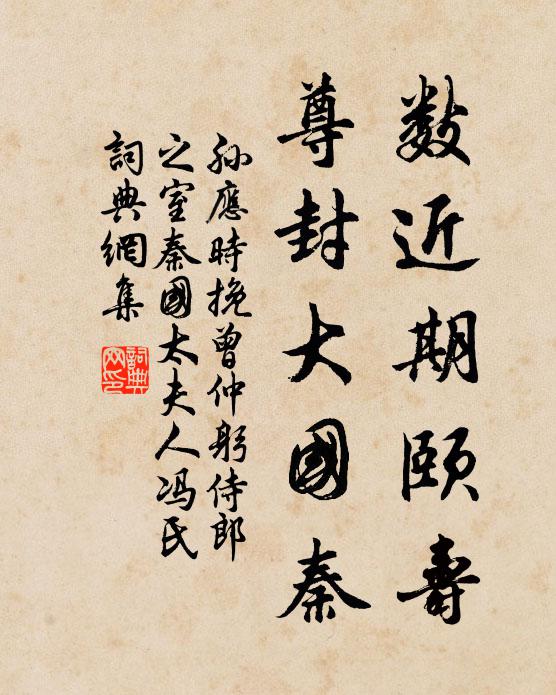 数近期頤壽
尊封大國秦
孫應時挽曾仲躬侍郎
之室秦國太夫人馮氏
詞典網集
詞典
网印